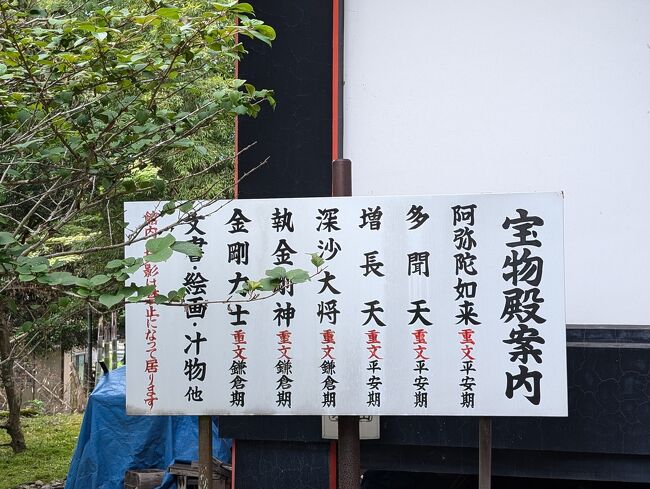 宝物殿案内
阿弥陀如来 重文 平安期
多聞天 重文 平安期
増長天 重文 平安期
深沙大将 重文 鎌倉期
執金剛神 重文 鎌倉期
金剛力士 重文 鎌倉期
文書・絵画・汁物 他
館内撮影は禁止になって居ります